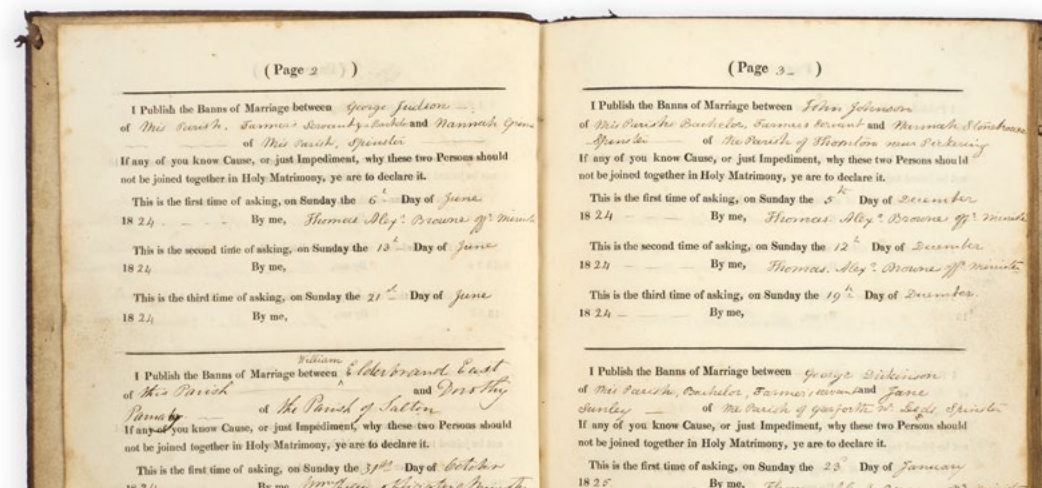 ( Page 2 )
I Publish the Banns of Marriage between George Judson
of this Parish, Farmer's Servant & Bachelor and Hannah
of this Parish, Spinster
If any of you know Cause, or just Impediment, why these two Persons should
not be joined together in Holy Matrimony, ye are to declare it.
This is the first time of asking, on Sunday the 6th Day of June
1824 By me, Thomas Alexr. Browne offg. Minister
This is the second time of asking, on Sunday the 13th Day of June
1824 By me,
This is the third time of asking, on Sunday the 21st Day of June
1824 By me,
William
I Publish the Banns of Marriage between ^ Elderbrand East
of this Parish and Dorothy
of the Parish of Salton
If any of you know Cause, or just Impediment, why these two Persons should
not be joined together in Holy Matrimony, ye are to declare it.
This is the first time of asking, on Sunday the 31st Day of October
1824 By me, Officiating Minister
( Page 3 )
I Publish the Banns of Marriage between John Johnson
of this Parish Bachelor, Farmers Servant and Hannah
Spinster of the Parish of Thornton near Pickering
If any of you know Cause, or just Impediment, why these two Persons should
not be joined together in Holy Matrimony, ye are to declare it.
This is the first time of asking, on Sunday the 5th Day of December
1824 By me, Thomas Alexr. Browne offg. Minister
This is the second time of asking, on Sunday the 12th Day of December
1824 By me, Thomas Alexr. Browne offg. Minister
This is the third time of asking, on Sunday the 19th Day of December.
1824 By me,
I Publish the Banns of Marriage between George Dickinson
of this Parish, Bachelor, Farmer's servant and Jane
Sunley of the Parish of Garforth nr. Leeds, Spinster
If any of you know Cause, or just Impediment, why these two Persons should
not be joined together in Holy Matrimony, ye are to declare it.
This is the first time of asking, on Sunday the 23d Day of January
1825 By me,